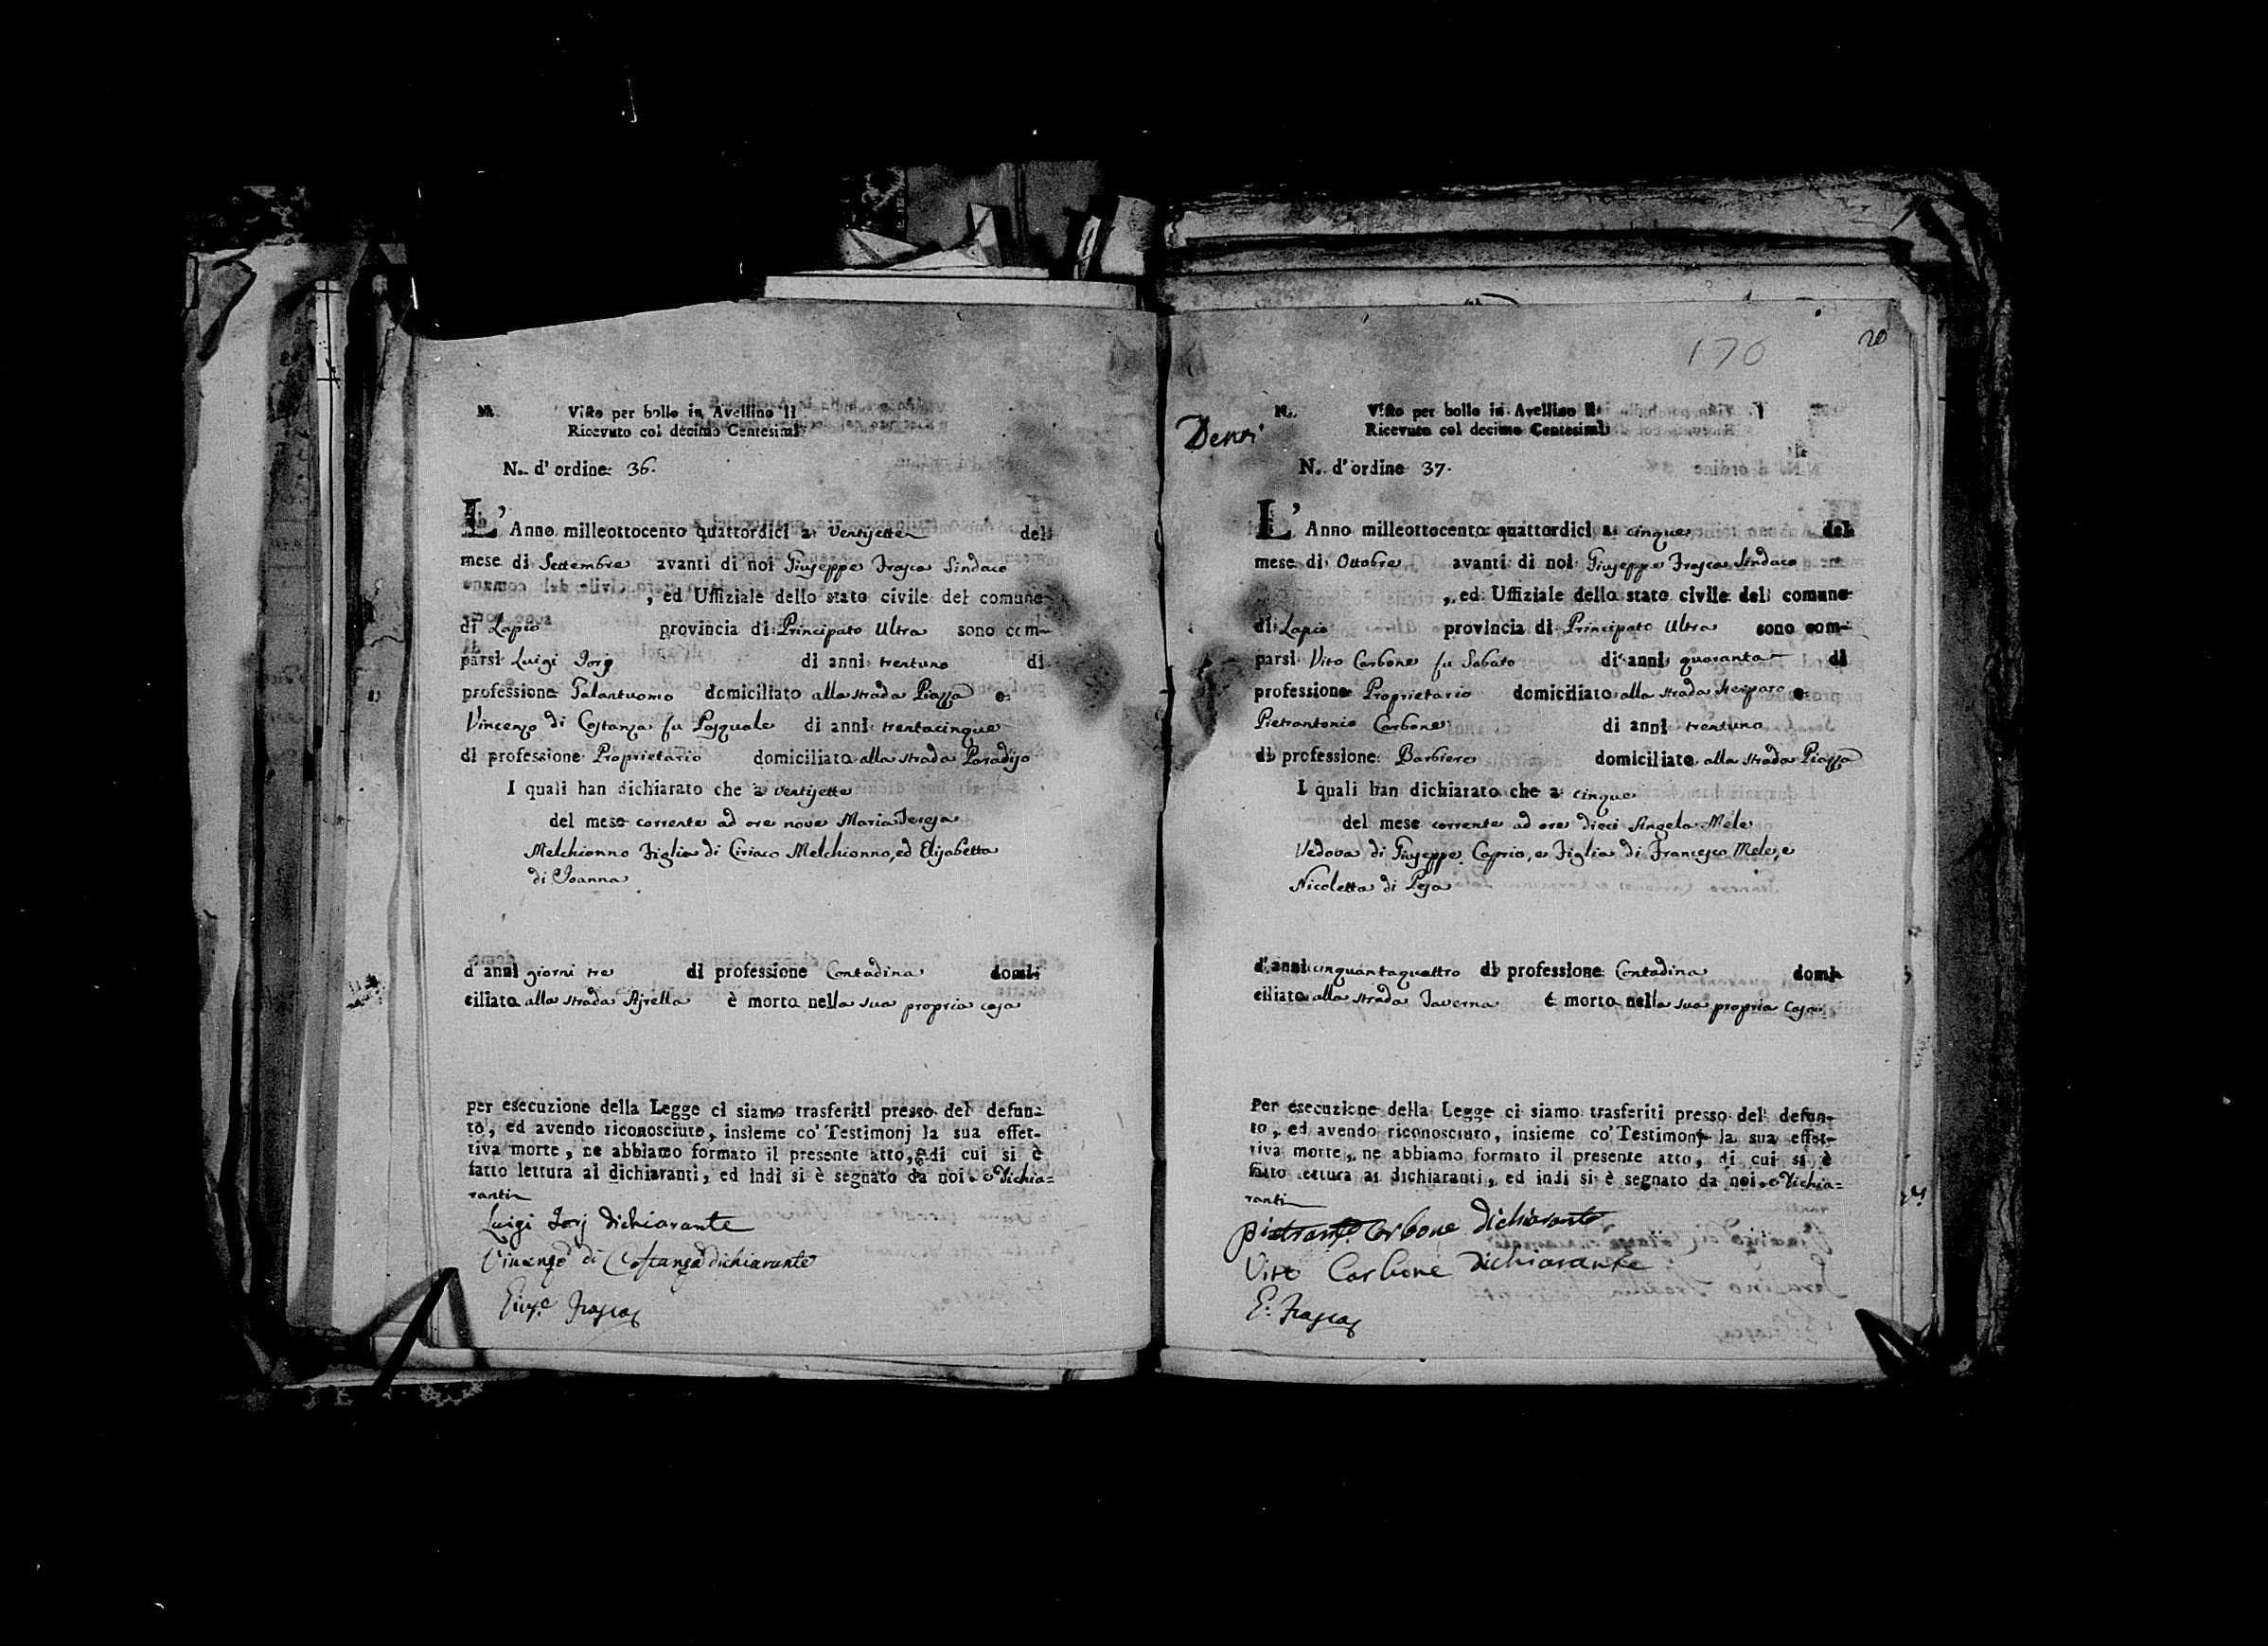 N. Visto per bollo in Avellino Il
Ricevuto col decimo Centesimi
N. d'ordine 36.
L'Anno milleottocento quattordici a ventisette del
mese di Settembre avanti di noi Giuseppe Frasca Sindaco
, ed Uffiziale dello stato civile del comune
di Lapio provincia di Principato Ultra sono com-
parsi Luigi Jorj di anni trentuno di
professione Galantuomo domiciliato alla strada Piazza e
Vincenzo di Costanza fu Pasquale di anni trentacinque
di professione Proprietario domiciliato alla strada Paradiso
I quali han dichiarato che a ventisette
del mese corrente ad ore nove Maria Teresa
Melchionno Figlia di Ciriaco Melchionno, ed Elisabetta
di Joanna
d'anni giorni tre di professione Contadina domi-
ciliato alla strada Ajrella è morto nella sua propria casa
per esecuzione della Legge ci siamo trasferiti presso del defun-
to, ed avendo riconosciuto, insieme co' Testimonj la sua effet-
tiva morte, ne abbiamo formato il presente atto, di cui si è
fatto lettura ai dichiaranti, ed indi si è segnato da noi, e Dichia=
ranti
Luigi Jorj dichiarante
Vincenzo di Costanza dichiarante
Gius.e Frasca
170
20
N. Visto per bollo in Avellino Il
Ricevuto col decimo Centesimi
N. d'ordine 37.
L'Anno milleottocento quattordici a cinque del
mese di Ottobre avanti di noi Giuseppe Frasca Sindaco
, ed Uffiziale dello stato civile del comune
di Lapio provincia di Principato Ultra sono com-
parsi Vito Carbone fu Sabato di anni quaranta di
professione Proprietario domiciliato alla strada e
Pietrantonio Carbone di anni trentuno
di professione Barbiere domiciliato alla strada Piazza
I quali han dichiarato che a cinque
del mese corrente ad ore dieci Angela Mele
Vedova di Giuseppe Caprio, e Figlia di Francesco Mele, e
Nicoletta di Pesa
d'anni cinquantaquattro di professione Contadina domi-
ciliato alla strada Taverna è morto nella sua propria casa
Per esecuzione della Legge ci siamo trasferiti presso del defun-
to, ed avendo riconosciuto, insieme co' Testimonj la sua effet-
tiva morte, ne abbiamo formato il presente atto, di cui si è
fatto lettura ai dichiaranti, ed indi si è segnato da noi, e Dichia=
ranti
Carbone dichiarante
Vito Carbone dichiarante
G: Frasca